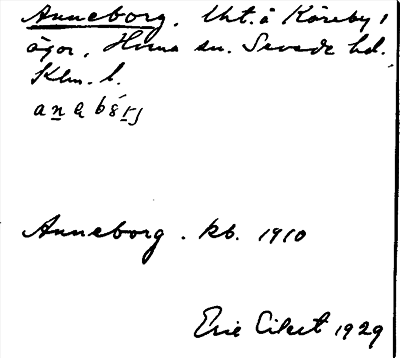 Anneborg. Lht. å Käreby
ägor, sn. Sevede hd.
Klm. l.
Anneborg. kb. 1910
Eric Cilert 1929